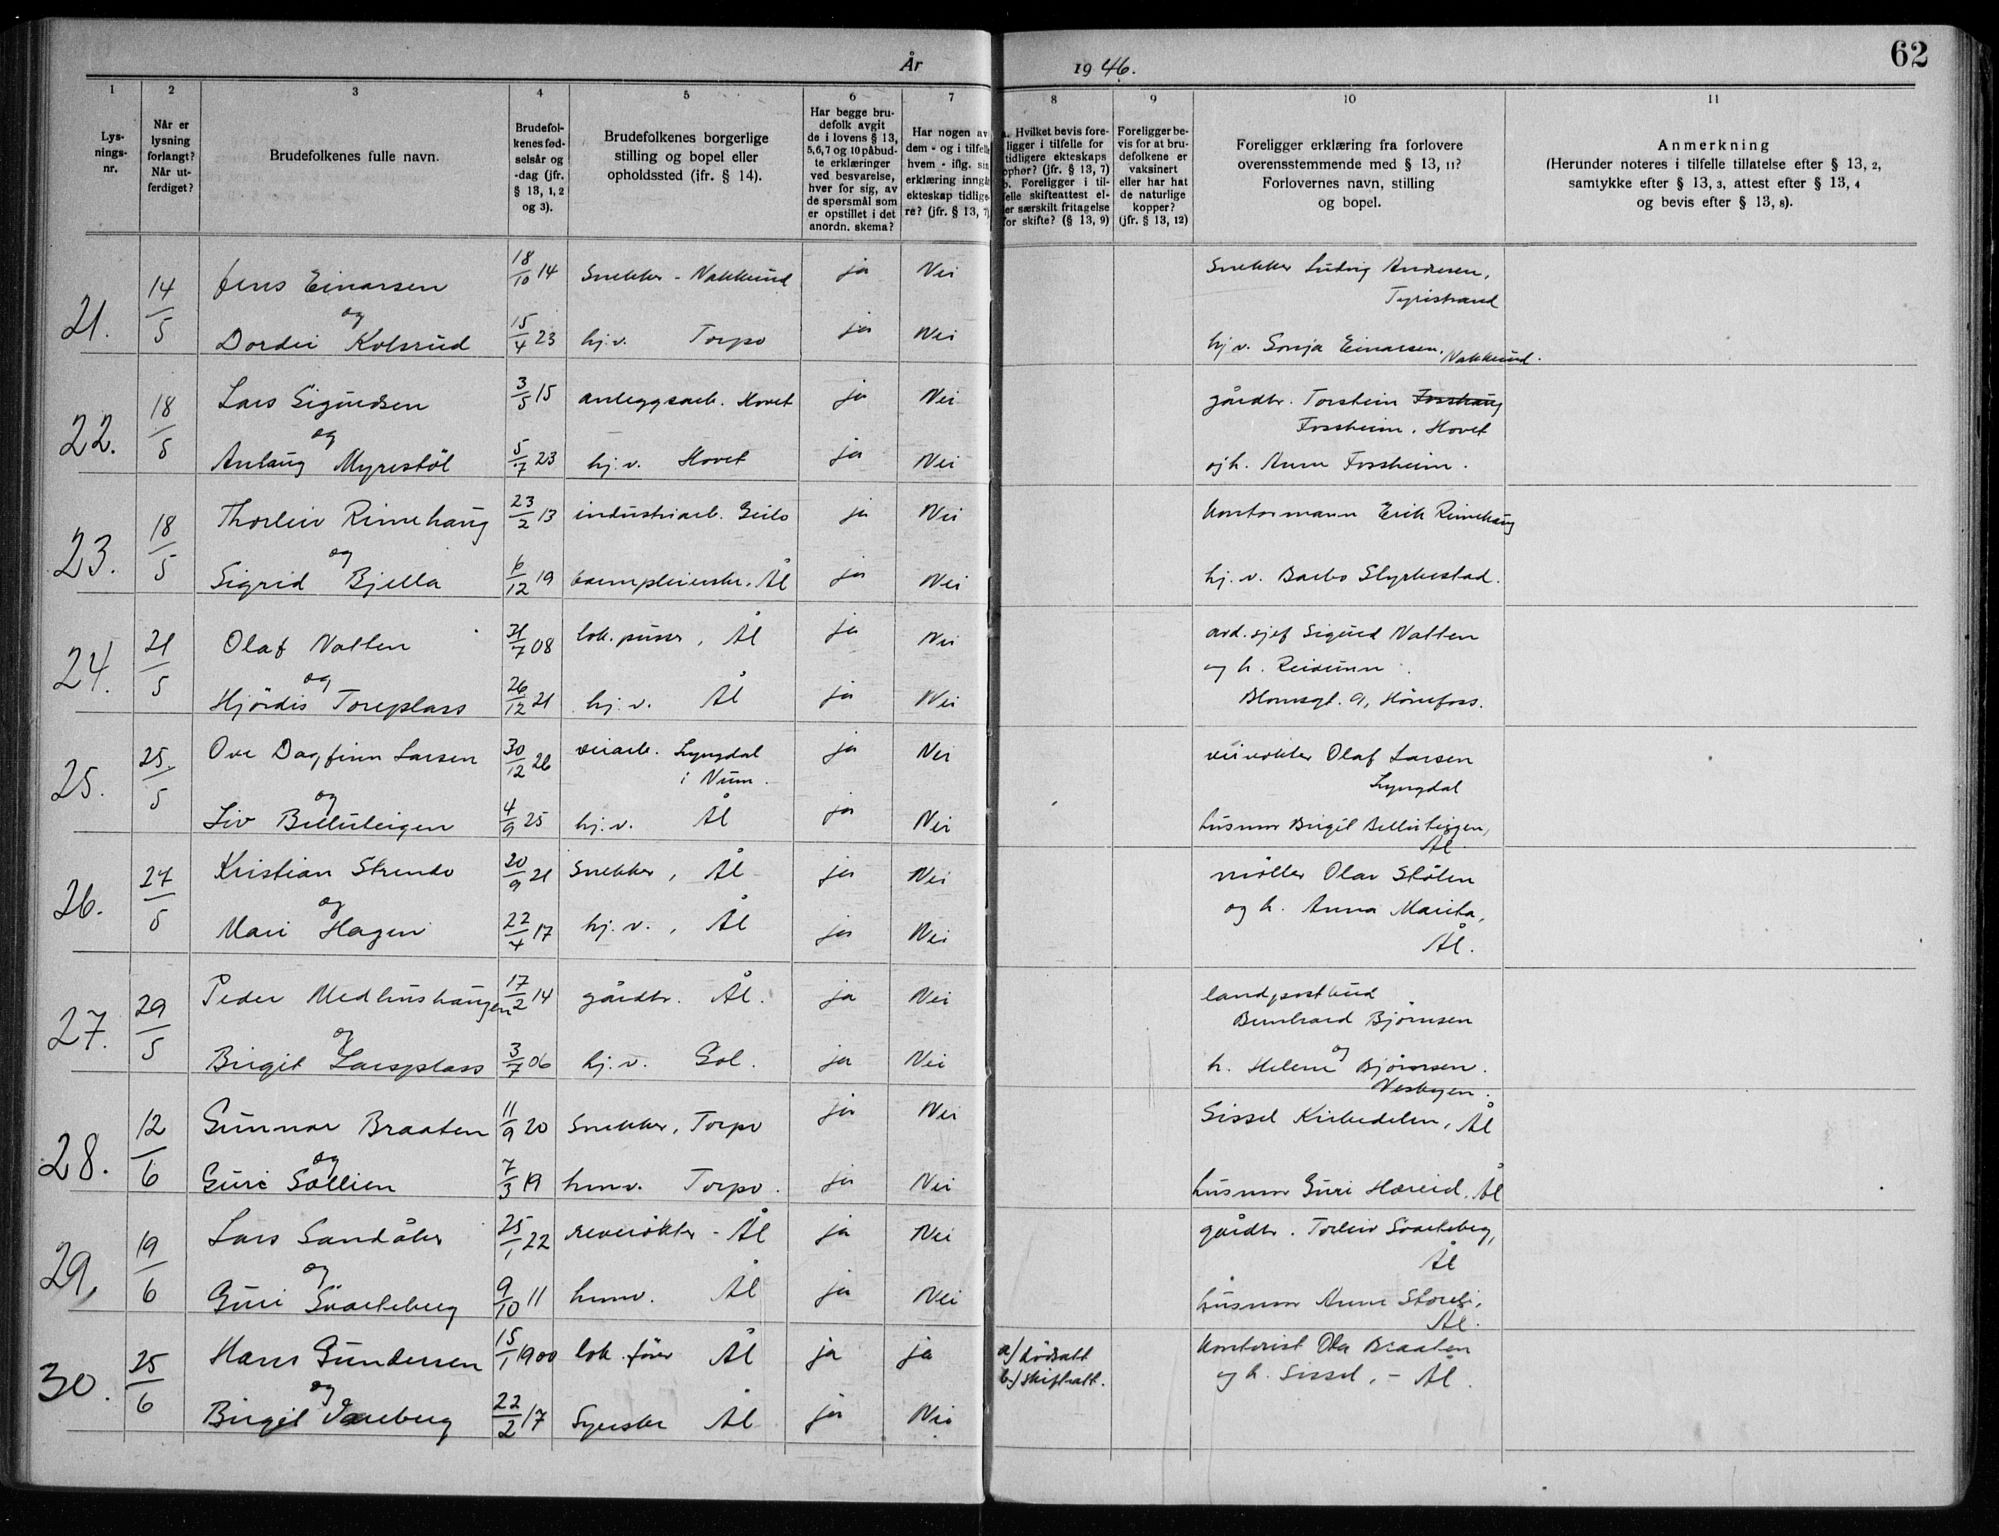 År
19 46.
62
1
2
3
4
5
6
7
8
9
10
11
Lys-
nings-
nr.
Når er
lysning
forlangt?
Når ut-
ferdiget?
Brudefolkenes fulle navn.
Brudefol-
kenes fød-
selsår og
-dag (jfr.
§ 13, 1, 2
og 3).
Brudefolkenes borgerlige
stilling og bopel eller
opholdssted (ifr. § 14).
Har begge bru-
defolk avgit
de i lovens § 13,
5,6,7 og 10 påbud-
te erklæringer
ved besvarelse,
hver for sig, av
de spørsmål som
er opstillet i det
anordn. skema?
Har nogen av
dem - og i tilfelle
hvem - iflg. sin
erklæring inngåt
ekteskap tidlige-
re? (jfr. § 13, 7)
a. Hvilket bevis fore-
ligger i tilfelle for
tidligere ekteskaps
ophør? (jfr. § 13, 7)
b. Foreligger i til-
felle skifteattest el-
ler særskilt fritagelse
for skifte? (§ 13, 9)
Foreligger be-
vis for at bru-
defolkene er
vaksinert
eller har hat
de naturlige
kopper?
(jfr. § 13, 12)
Foreligger erklæring fra forlovere
overensstemmende med § 13, 11?
Forlovernes navn, stilling
og bopel.
Anmerkning
(Herunder noteres i tilfelle tillatelse efter § 13, 2,
samtykke efter § 13, 3, attest efter § 13, 4
og bevis efter § 13, 8).
21. 14/5 Jens Einarsen 18/10 14 Snekker - Nakkerud ja Nei Snekker Ludvig Andresen,
Tyristrand
og
Dordei Kolsrud 15/4 23 hj.v. Torpo ja Nei hj.v. Sonja Einarsen, Nakkerud.
22. 18/5 Lars Sigurdsen 3/5 15 anleggsarb. Hovet ja Nei gårdbr. Torstein Fosshaug
Fossheim, Hovet
og
Anlaug Myrestöl 5/7 23 hj.v. Hovet ja Nei og h. Anne Fossheim.
23. 18/5 Thorleiv Rimehaug 23/2 13 industriarb. Geilo ja Nei Kontormann Erik Rimehaug
og
Sigrid Bjella 6/12 19 barnepleierske, Ål ja Nei hj.v. Barbo Styrkestad.
24. 21/5 Olaf Natten 31/7 08 lok.pusser, Ål ja Nei avd.sjef Sigurd Natten
og h. Reidunn
og
Hjördis Toreplass 26/12 21 hj.v. Ål ja Nei Blomsgt. 9, Hönefoss.
25. 25/5 Ove Dagfinn Larsen 30/12 26 veiarb. Lyngdal
i Num. ja Nei veivokter Olaf Larsen
Lyngdal
og
Liv Belleleigen 4/9 25 hj.v. Ål ja Nei husmor Birgit Belleleigen,
Ål
26. 27/5 Kristian Strendo 20/9 21 Snekker, Ål ja Nei möller Olav Stölen
og h. Anna Marita,
og
Mari Hagen 22/4 17 hj.v., Ål ja Nei Ål.
27. 29/5 Peder Medhushaugen 17/2 14 gårdbr. Ål. ja Nei landpostbud
Bernhard Bjørnsen
og og
Birgit Larsplass 3/7 06 hj.v. Gol. ja Nei h. Helene Bjørnsen.
Vesbyen.
28. 12/6 Gunnar Braaten 11/9 20 Snekker, Torpo ja Nei Sissel Kirkedelen, Ål
og
Guri Sollien 7/3 19 husv. Torpo. ja Nei husmor Guri Hæreid, Ål
29. 19/6 Lars Sandåker 25/1 22 revevökter - Ål ja Nei gårdbr. Torleiv Svarteberg,
Ål
og
Guri Svarteberg 9/10 11 husv. Ål ja Nei husmor Anne Storeli,
Ål.
30. 25/6 Hans Gundersen 15/1 1900 lok.fører Ål ja ja a) Dödsatt
b) Skifteatt. Kontorist Ola Braaten
og h. Sissel, - Ål.
og
Birgit Vareberg 22/2 17 Syerske Ål ja Nei